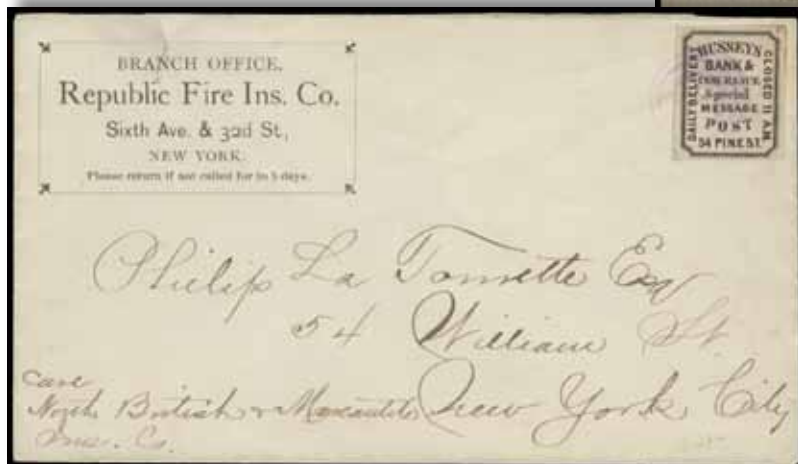 BRANCH OFFICE,
Republic Fire Ins. Co.
Sixth Ave. & 32d St.,
NEW YORK.
Please return if not called for in 5 days.
HUSSEY'S
BANK &
INSURANCE
Special
MESSAGE
POST
54 PINE ST.
DAILY DELIVERY
CLOSED 11 AM
Philip La Tourrette Esq
54 William St.
New York City
care
North British & Mercantile
Ins. Co.